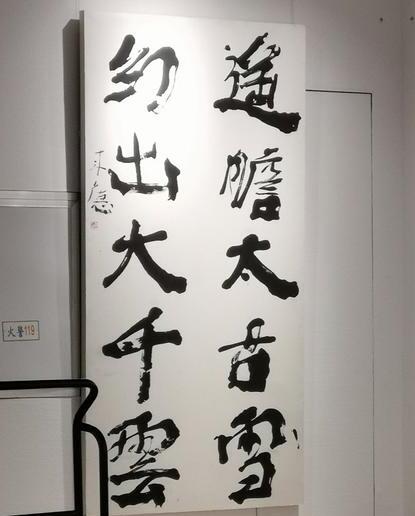 遥瞻太古雪
幻出大千雲
来德
火警119